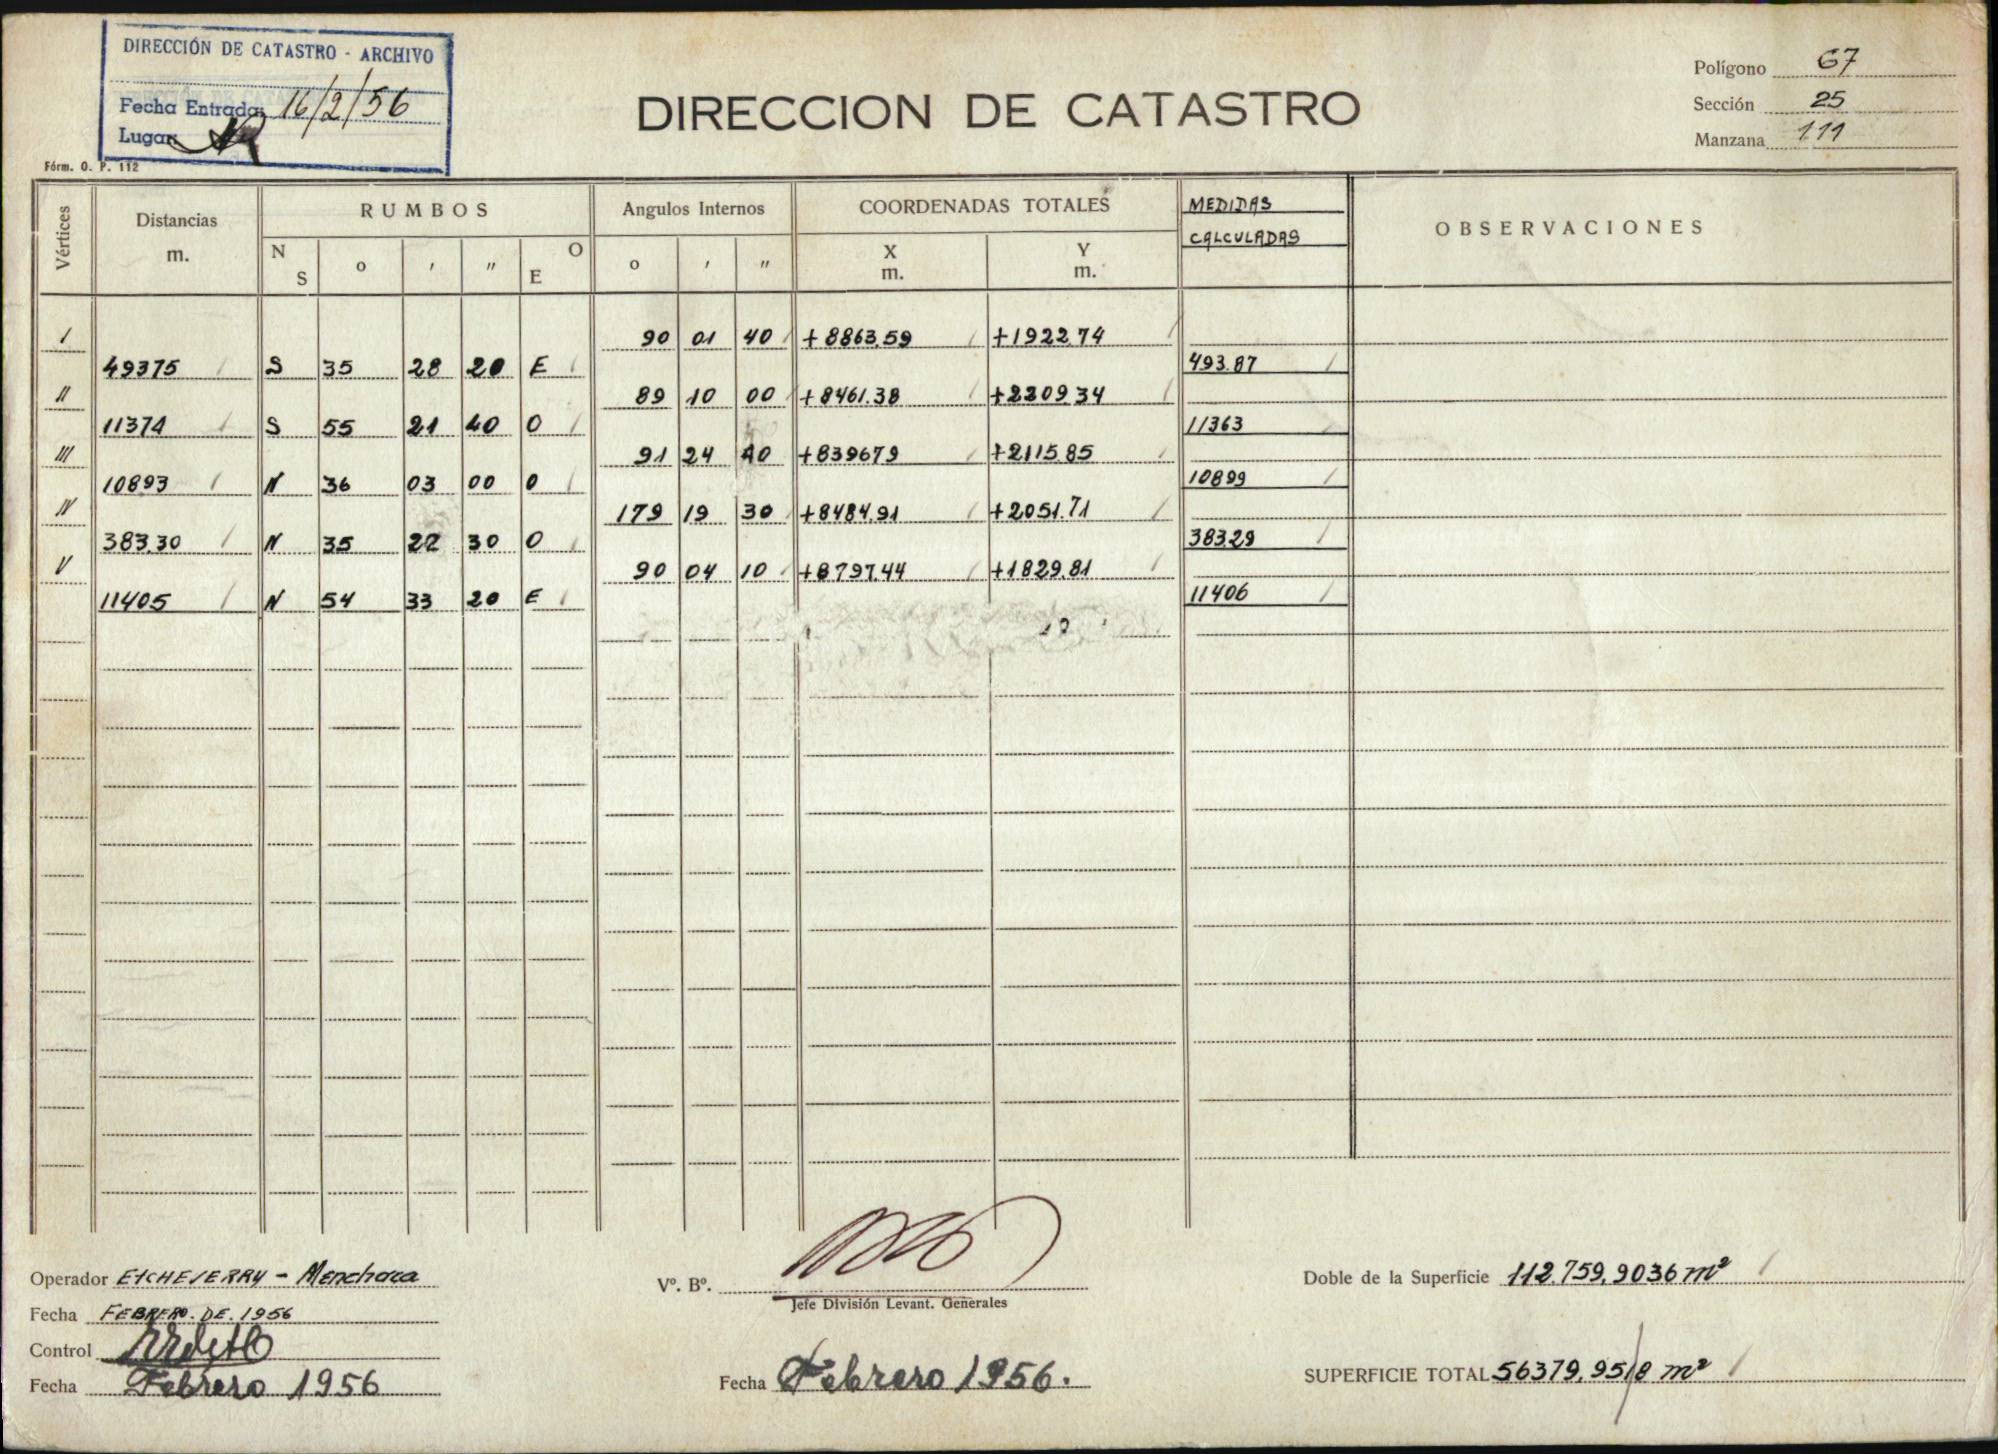 DIRECCIÓN DE CATASTRO - ARCHIVO
Fecha Entrada: 16/2/56
Lugar:
DIRECCION DE CATASTRO
Polígono 67
Sección 25
Manzana 111
Fórm. O. P. 112
Vértices Distancias m. RUMBOS Angulos Internos COORDENADAS TOTALES MEDIDAS CALCULADAS OBSERVACIONES
N S o ' " O E o ' " X m. Y m.
I 90 01 40 +8863.59 +1922.74
493.75 S 35 28 20 E 493.87
II 89 10 00 +8461.38 +2209.34
113.74 S 55 21 40 O 113.63
III 91 24 40 +8396.79 +2115.85
108.93 N 36 03 00 O 108.99
IV 179 19 30 +8484.91 +2051.71
383.30 N 35 22 30 O 383.29
V 90 04 10 +8797.44 +1829.81
114.05 N 54 33 20 E 114.06
Operador ETCHEVERRY - Menchaca
Fecha FEBRERO. DE. 1956
Control
Fecha Febrero 1956
Vº. Bº.
Jefe División Levant. Generales
Fecha Febrero 1956.
Doble de la Superficie 112.759,9036 m²
SUPERFICIE TOTAL 56379,9518 m²